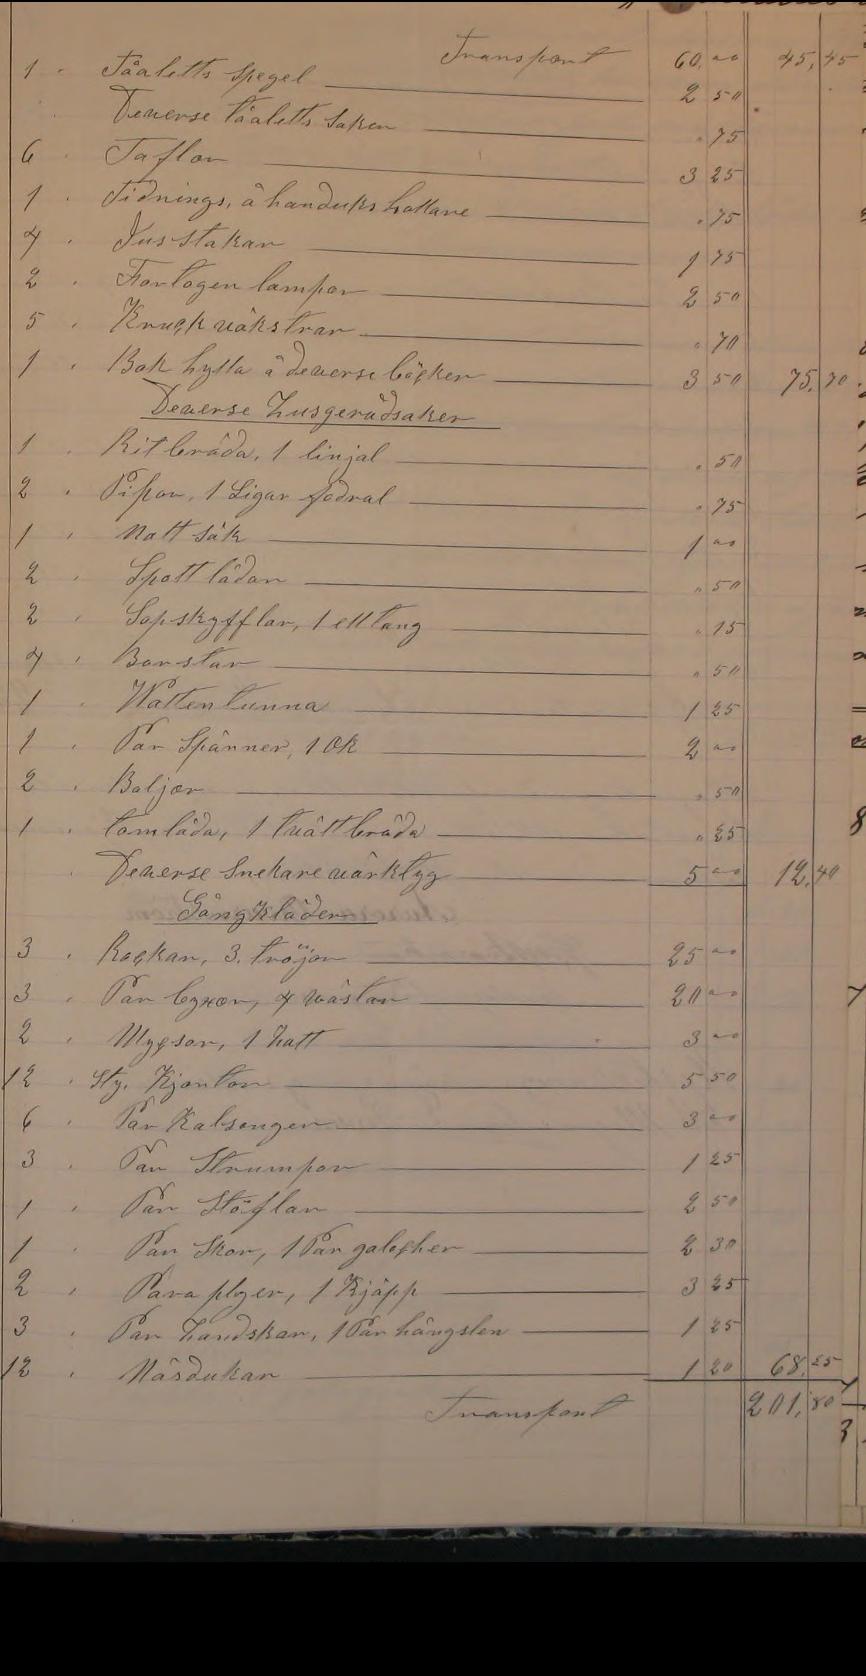 Transport 60. "" 45,45
1 " Tåaletts Spegel 2 50
Deverse tåaletts Saker " 75
6 " Taflor 3 25
1 " Tidnings, å handuks hållare " 75
4 " Jusstakar 1 75
2 " Fortogen lampor 2 50
5 " Kruck väkstrar " 70
1 " Bok hylla å deverse böcker 3 50 75,70
Deverse Husgerådsaker
1 " Ritbråda, 1 linjal " 50
2 " Pipor, 1 Sigar fodral " 75
1 " Natt säk 1 ""
2 " Spott lådor " 50
2 " Sopskyfflar, 1 elltång " 15
4 " Borstar " 50
1 " Wattentunna 1 25
1 " Par Spänner, 1 Ok 2 ""
2 " Baljor " 50
1 " tomlåda, 1 tvättbråda " 25
Deverse Snekarevärktyg 5 "" 12,40
Gångkläder
3 " Rockar, 3. tröjor 25 ""
3 " Par byxor, 4 wästar 20 ""
2 " Mygsor, 1 hatt 3 ""
12 " Sty. Kjortor 5 50
6 " Par Kalsonger 3 ""
3 " Par Strumpor 1 25
1 " Par Stöflar 2 50
1 " Par Skor, 1 Par galocher 2 30
2 " Paraplyer, 1 Kjäpp 3 25
3 " Par Handskar, 1 Par hängslen 1 25
12 " Näsdukar 1 20 68,25
Transport 201,80